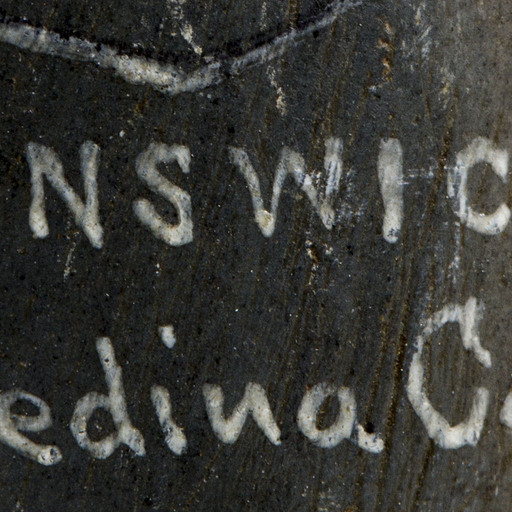 NSWIC
edina C